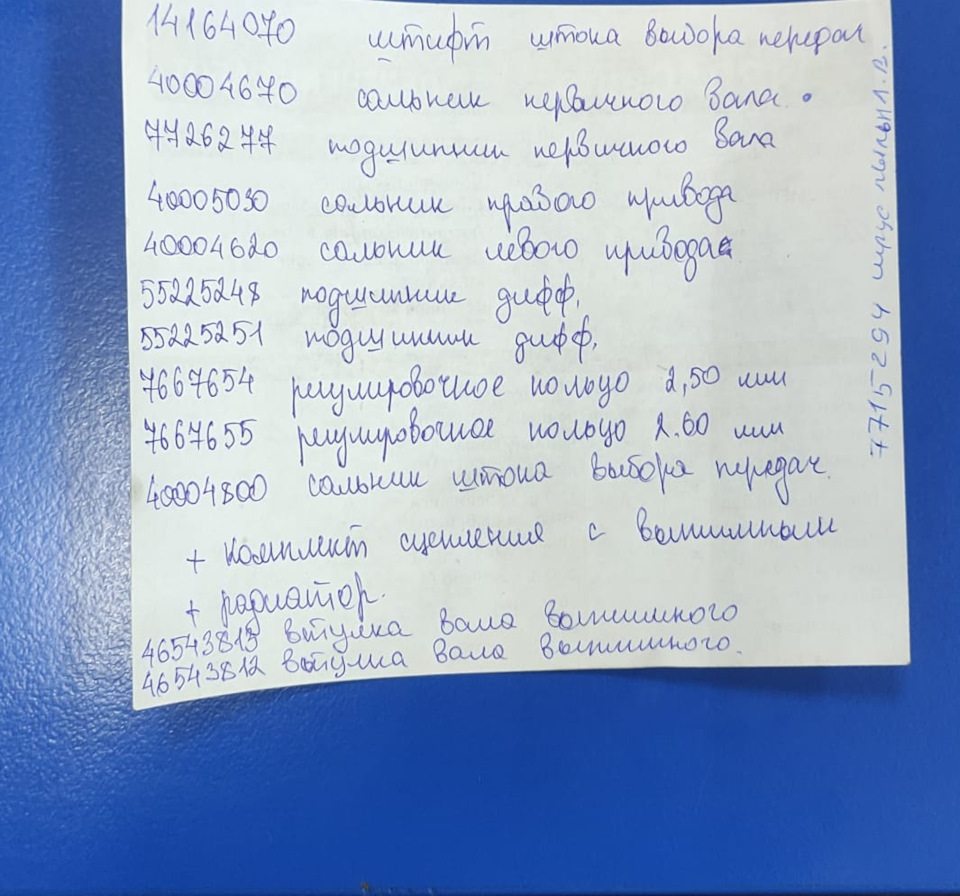 14164070 штифт штока выбора передач
40004670 сальник первичного вала.
7726277 подшипник первичного вала
40005030 сальник правого привода
40004620 сальник левого привода
55225248 подшипник дифф.
55225251 подшипник дифф.
7667654 регулировочное кольцо 2,50 мм
7667655 регулировочное кольцо 2.60 мм
40004800 сальник штока выбора передач.
+ комплект сцепления с выжимным
+ радиатор.
46543813 втулка вала выжимного
46543812 втулка вала выжимного.
7715294 шрус